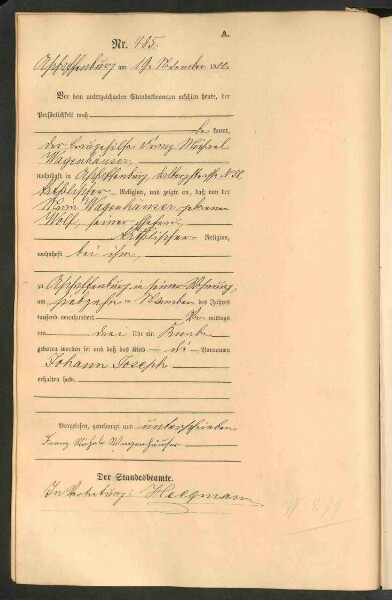 A.
Nr. 485.
Aschaffenburg am 19. November 1900.
Vor dem unterzeichneten Standesbeamten erschien heute, der
Persönlichkeit nach
be kannt,
der Baugehilfe Franz Michael
Wagenhäuser,
wohnhaft in Aschaffenburg,
katholischer Religion, und zeigte an, daß von der
Wagenhäuser, geborene
Wolf, seiner Ehefrau,
katholischer Religion,
wohnhaft bei ihm,
zu Aschaffenburg in seiner Wohnung,
am siebzehn ten November des Jahres
tausend neunhundert Vor mittags
um drei Uhr ein Knabe
geboren worden sei und daß das Kind die Vornamen
Johann Joseph
erhalten habe
Vorgelesen, genehmigt und unterschrieben
Franz Michael Wagenhäuser
Der Standesbeamte.
In Vertretung: